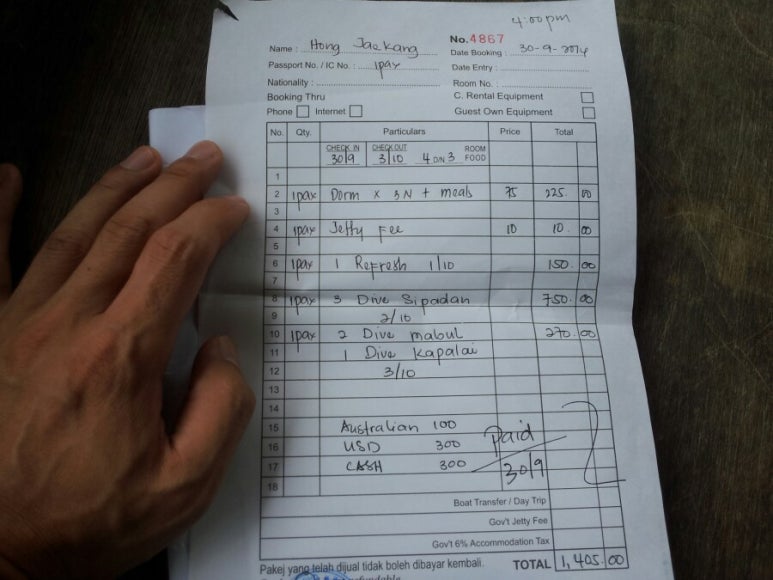 4:00pm
No. 4867
Name : Hong Jae Kang
Date Booking : 30-9-2014
Passport No. / IC No. : 1pax
Date Entry :
Nationality :
Room No. :
Booking Thru
C. Rental Equipment
Phone Internet
Guest Own Equipment
No. Qty. Particulars Price Total
CHECK IN CHECK OUT ROOM
30/9 3/10 4 D/N 3 FOOD
1
2 1pax Dorm x 3N + meals 75 225.00
3
4 1pax Jetty Fee 10 10.00
5
6 1pax 1 Refresh 1/10 150.00
7
8 1pax 3 Dive Sipadan 750.00
9 2/10
10 1pax 2 Dive mabul 270.00
11 1 Dive Kapalai
12 3/10
13
14
15 Australian 100
16 USD 300 Paid
17 CASH 300 30/9
18
Boat Transfer / Day Trip
Gov't Jetty Fee
Gov't 6% Accommodation Tax
Pakej yang telah dijual tidak boleh dibayar kembali. TOTAL 1,405.00